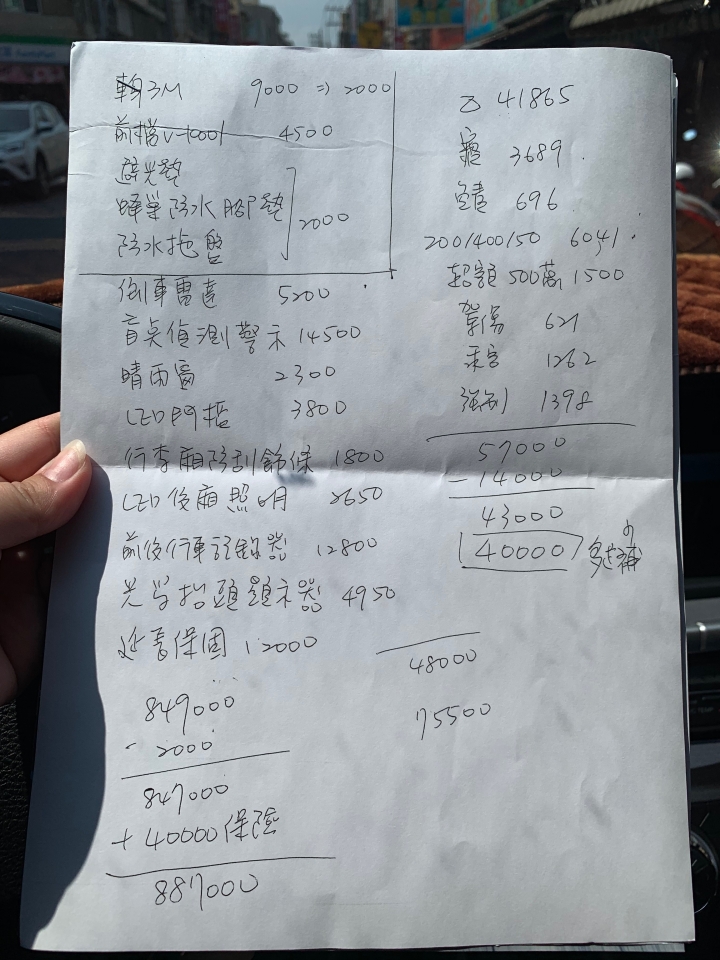 3M 9000 => 2000
前檔V-Kool 4500
避光墊
蜂巢防水腳墊
防水拖盤
2000
倒車雷達 5200
盲点偵測警示 14500
晴雨窗 2300
LED門踏 3800
行李廂防刮飾條 1800
LED後廂照明 2650
前後行車記錄器 12800
光学抬頭顕示器 4950
延長保固 12000
849000
- 2000
847000
+ 40000 保險
887000
乙 41865
3689
696
200/400/50 6041
超額500萬 1500
駕傷 627
乘客 1262
強制 1398
57000
- 14000
43000
40000 多退少補
48000
75500